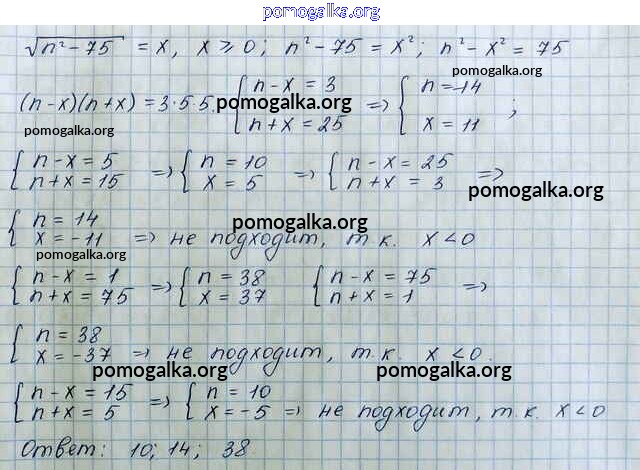 pomogalka.org
√(n² - 75) = x, x ⩾ 0; n² - 75 = x²; n² - x² = 75
pomogalka.org
(n-x)(n+x) = 3·5·5. { n - x = 3 n + x = 25 => { n = 14 x = 11 ;
pomogalka.org
pomogalka.org
{ n - x = 5 n + x = 15 => { n = 10 x = 5 => { n - x = 25 n + x = 3 =>
pomogalka.org
{ n = 14 x = -11 => не подходит, т.к. x < 0
pomogalka.org
pomogalka.org
{ n - x = 1 n + x = 75 => { n = 38 x = 37 { n - x = 75 n + x = 1 =>
{ n = 38 x = -37 => не подходит, т.к. x < 0.
pomogalka.org
pomogalka.org
{ n - x = 15 n + x = 5 => { n = 10 x = -5 => не подходит, т.к. x < 0
Ответ: 10; 14; 38